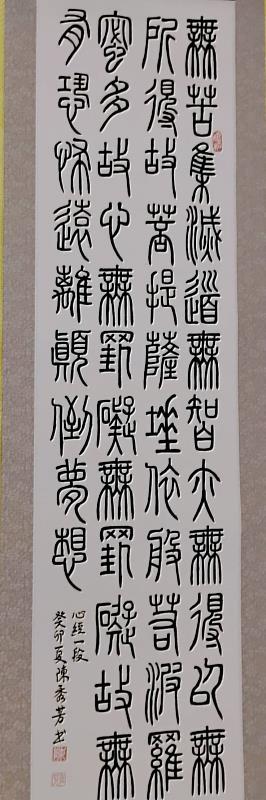 無苦集滅道無智亦無得以無
所得故菩提薩埵依般若波羅
蜜多故心無罣礙無罣礙故無
有恐怖遠離顛倒夢想
心經一段
癸卯夏陳秀芳書